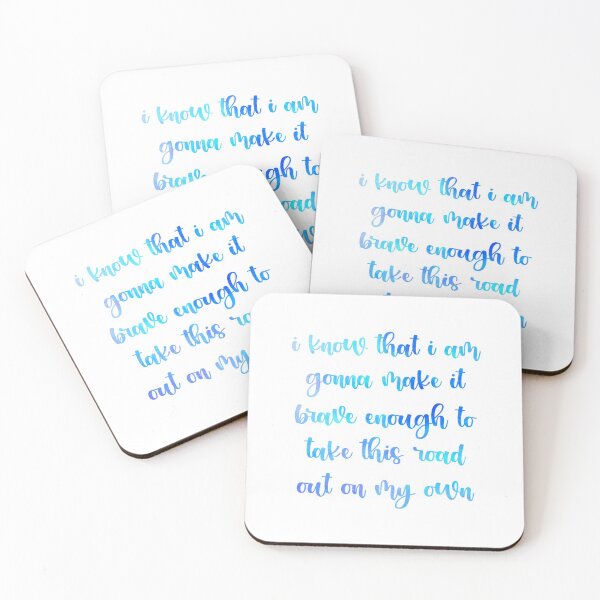 i know that i am
gonna make it
brave enough to
road
i know that i am
gonna make it
brave enough to
take this road
i know that i am
gonna make it
brave enough to
take this road
out on my
i know that i am
gonna make it
brave enough to
take this road
out on my own